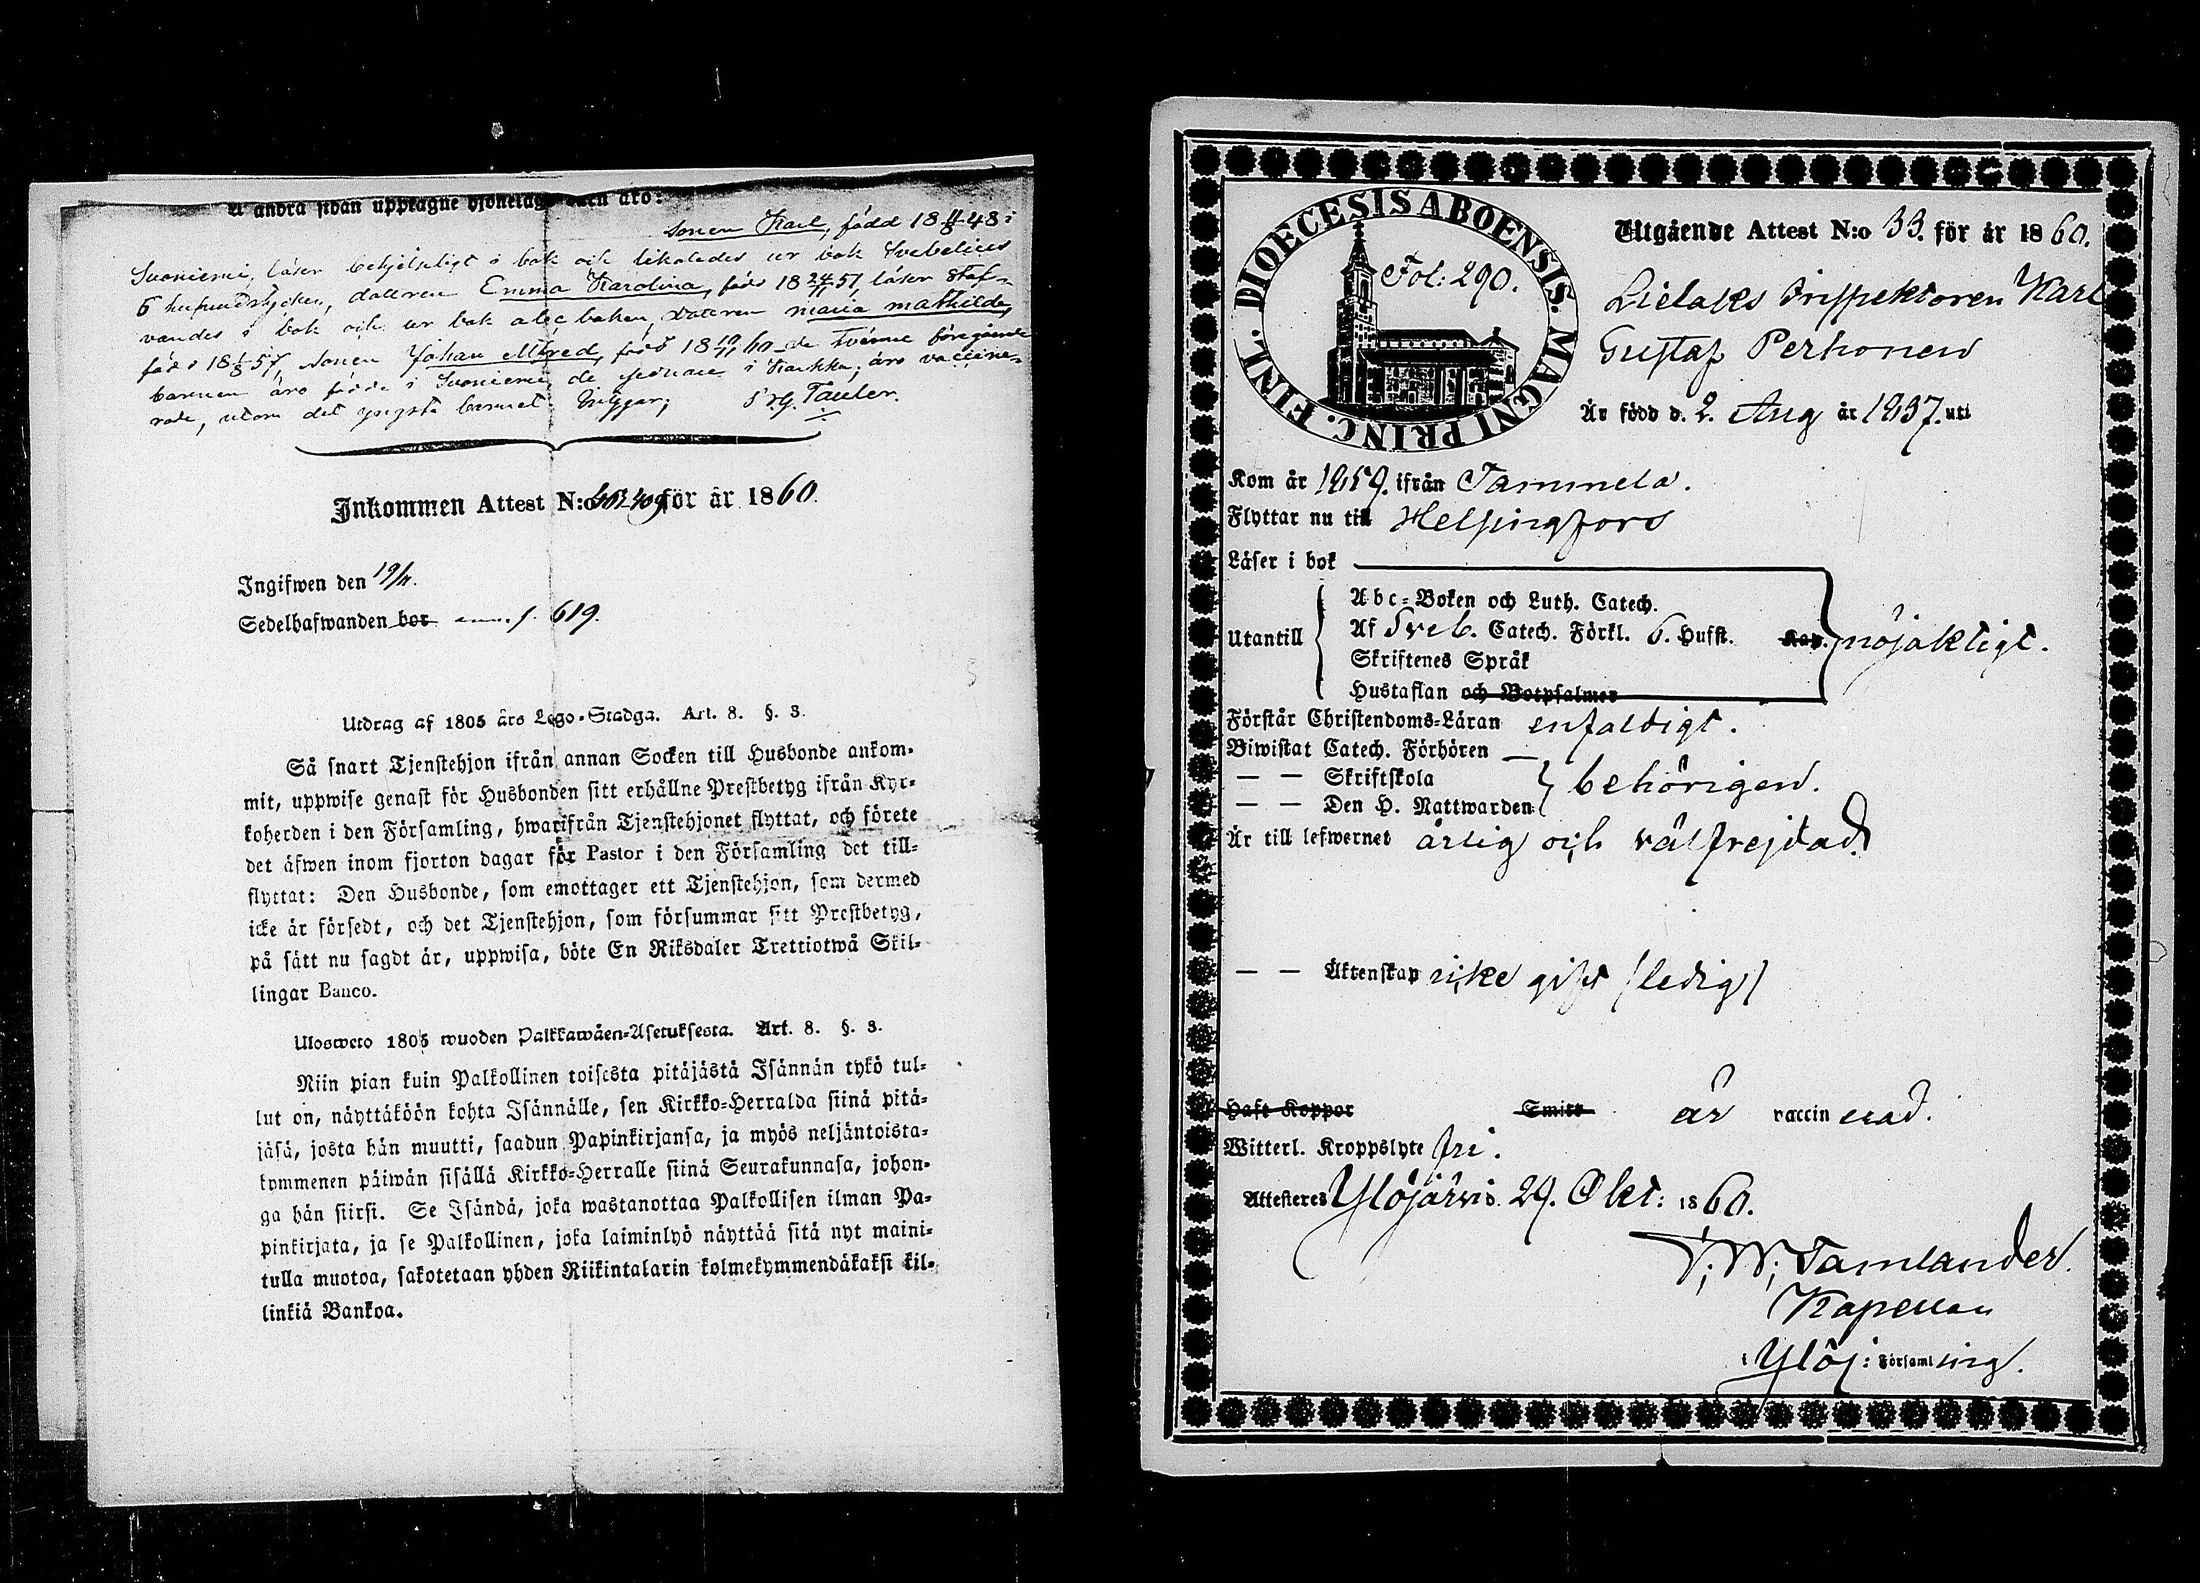 andra sidan upptagne hjonelags äro:
Sonen Karl, född 18 48 i
Suoniemi, läser behjelpligt i bok och likaledes ur bok Svebelii
6 hufvudstycken, dottren Emma Karolina, född 18 24/11 51, läser staf-
vandes i bok och ur bok abc boken, dottren Maria Mathilda,
född 18 57, sonen Johan Alfred, född 18 60 de tvenne föregående
barnen äro födde i Suoniemi de sednare i Karkku; äro vaccine-
rade, utom det yngsta barnet. Intygar; Tauler.
Inkommen Attest N:o för år 1860.
Ingifwen den 19/11.
Sedelhafwanden bor 619.
Utdrag af 1805 års Lego-Stadga. Art. 8. §. 3.
Så snart Tjenstehjon ifrån annan Socken till Husbonde ankom-
mit, uppwise genast för Husbonden sitt erhållne Prestbetyg ifrån Kyr-
koherden i den Församling, hwarifrån Tjenstehjonet flyttat, och förete
det äfwen inom fjorton dagar för Pastor i den Församling det till-
flyttat: Den Husbonde, som emottager ett Tjenstehjon, som dermed
icke är försedt, och det Tjenstehjon, som försummar sitt Prestbetyg,
på sätt nu sagdt är, uppwisa, böte En Riksdaler Trettiotwå Skil-
lingar Banco.
Ulosweto 1805 wuoden Palkkawäen-Asetuksesta. Art. 8. §. 3.
Niin pian kuin Palkollinen toisesta pitäjästä Isännän tykö tul-
lut on, näyttäköön kohta Isännälle, sen Kirkko-Herralda siinä pitä-
jäsä, josta hän muutti, saadun Papinkirjansa, ja myös neljäntoista-
kymmenen päiwän sisällä Kirkko-Herralle siinä Seurakunnasa, johon-
ga hän siirsi. Se Isändä, joka wastanottaa Palkollisen ilman Pa-
pinkirjata, ja se Palkollinen, joka laiminlyö näyttää sitä nyt maini-
tulla muotoa, sakotetaan yhden Riikintalarin kolmekymmendäkaksi kil-
linkiä Bankoa.
FINL. DIOECESIS ABOENSIS. MAGNI PRINC.
Fol: 290.
Utgående Attest N:o 33. för år 1860.
Lielaks Inspektoren Karl
Gustaf Perhonen
Är född d. 2. Aug år 1837. uti
Kom år 1859. ifrån Tammela.
Flyttar nu till Helsingfors
Läser i bok
Utantill
Abc-Boken och Luth. Catech.
Af Sveb. Catech. Förkl. 6. Hufst. Kap.
Skriftenes Språk
Hustaflan och Botpsalmer
nöjaktigt.
Förstår Christendoms-Läran enfaldigt.
Biwistat Catech. Förhören —
— — Skriftskola
— — Den H. Nattwarden
behörigen.
Är till lefwernet ärlig och välfrejdad
— — Äktenskap icke gift (ledig)
Haft Koppor Smitt är vaccinerad.
Witterl. Kroppslyte fri.
Attesteres Ylöjärvi d. 29. Okt: 1860.
Tamlander.
Kapellan
i Ylöj: Församling.